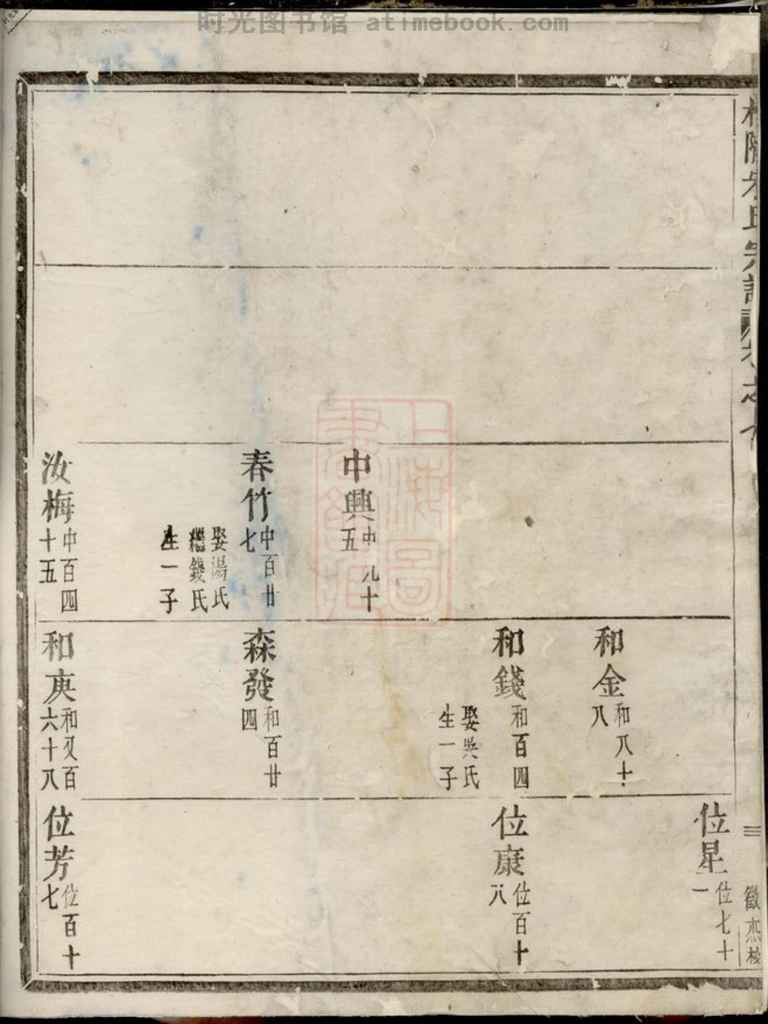 时光图书馆 atimebook.com
氏宗譜
卷之
三
徵杰校
中興 中九十
五
春竹 中百廿
七
娶湯氏
繼錢氏
生一子
汝梅 中百四
十五
和金 和八十
八
和錢 和百四
娶吳氏
生一子
森發 和百廿
四
和庚 和又百
六十八
位星 位七十
一
位康 位百十
八
位芳 位百十
七
上海圖